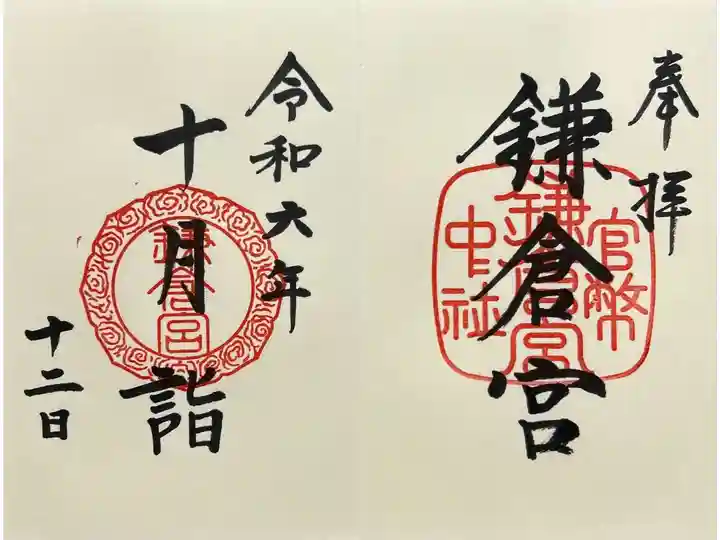 奉拝
官幣
鎌倉宮
中社
鎌倉宮
令和六年
十月詣
鎌倉宮
十二日